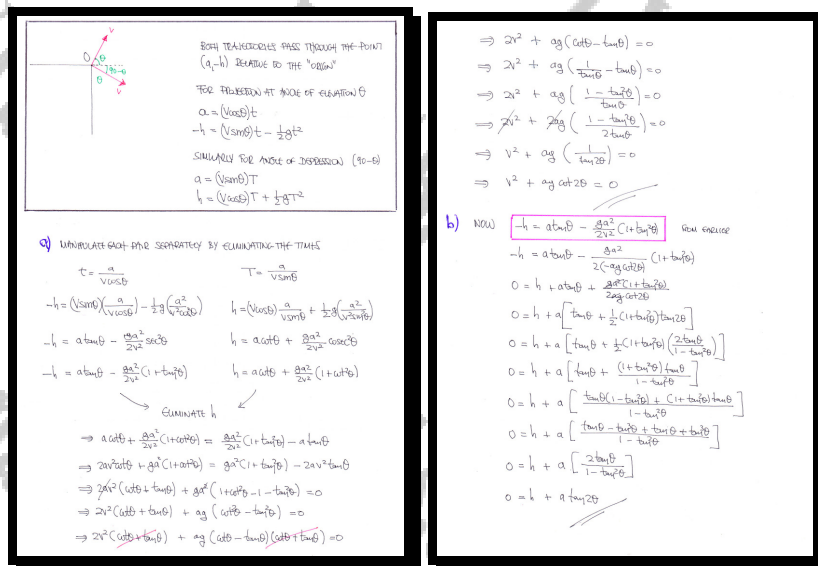 v
O θ
90-θ
θ
v
BOTH TRAJECTORIES PASS THROUGH THE POINT
(a,-h) RELATIVE TO THE "ORIGIN"
FOR PROJECTION AT ANGLE OF ELEVATION θ
a = (Vcosθ)t
-h = (Vsinθ)t - ½gt²
SIMILARLY FOR ANGLE OF DEPRESSION (90-θ)
a = (Vsinθ)T
h = (Vcosθ)T + ½gT²
a) MANIPULATE EACH PAIR SEPARATELY BY ELIMINATING THE TIMES
t = a/(Vcosθ) T = a/(Vsinθ)
-h = (Vsinθ)(a/(Vcosθ)) - ½g(a²/(V²cos²θ)) h = (Vcosθ) a/(Vsinθ) + ½g(a²/(V²sin²θ))
-h = atanθ - (ga²/2V²)sec²θ h = acotθ + (ga²/2V²)cosec²θ
-h = atanθ - (ga²/2V²)(1+tan²θ) h = acotθ + (ga²/2V²)(1+cot²θ)
ELIMINATE h
⇒ acotθ + (ga²/2V²)(1+cot²θ) = (ga²/2V²)(1+tan²θ) - atanθ
⇒ 2aV²cotθ + ga²(1+cot²θ) = ga²(1+tan²θ) - 2aV²tanθ
⇒ 2aV²(cotθ + tanθ) + ga²(1+cot²θ-1-tan²θ) = 0
⇒ 2V²(cotθ + tanθ) + ag(cot²θ - tan²θ) = 0
⇒ 2V²(cotθ+tanθ) + ag(cotθ-tanθ)(cotθ+tanθ) = 0
⇒ 2V² + ag(cotθ-tanθ) = 0
⇒ 2V² + ag(1/tanθ - tanθ) = 0
⇒ 2V² + ag((1-tan²θ)/tanθ) = 0
⇒ 2V² + 2ag((1-tan²θ)/2tanθ) = 0
⇒ V² + ag(1/tan2θ) = 0
⇒ V² + ag cot2θ = 0
b) NOW -h = atanθ - (ga²/2V²)(1+tan²θ) FROM EARLIER
-h = atanθ - (ga²/2(-agcot2θ))(1+tan²θ)
0 = h + atanθ + ga²(1+tan²θ)/2agcot2θ
0 = h + a[tanθ + ½(1+tan²θ)tan2θ]
0 = h + a[tanθ + ½(1+tan²θ)(2tanθ/(1-tan²θ))]
0 = h + a[tanθ + (1+tan²θ)tanθ/(1-tan²θ)]
0 = h + a[(tanθ(1-tan²θ) + (1+tan²θ)tanθ)/(1-tan²θ)]
0 = h + a[(tanθ - tan³θ + tanθ + tan³θ)/(1-tan²θ)]
0 = h + a[2tanθ/(1-tan²θ)]
0 = h + atan2θ